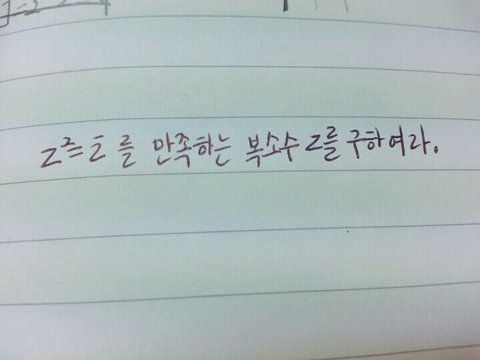 z²=i 를 만족하는 복소수 z를 구하여라.